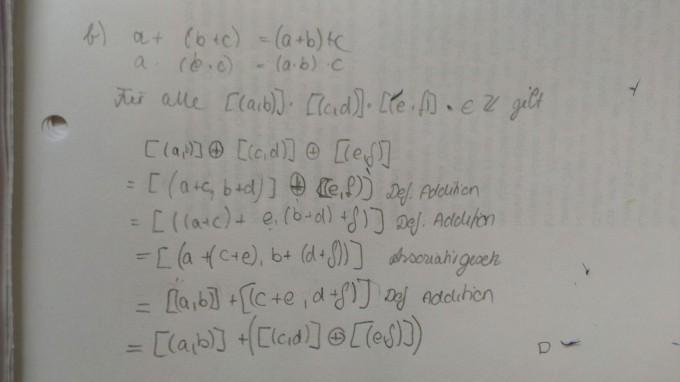 b) a + (b+c) = (a+b)+c
a · (b·c) = (a·b)·c
Für alle [(a,b)]· [(c,d)]· [(e,f)] · ∈ ℤ gilt
[(a,b)] ⊕ [(c,d)] ⊕ [(e,f)]
= [(a+c, b+d)] ⊕ [(e,f)] Def. Addition
= [((a+c)+ e, (b+d)+f)] Def. Addition
= [(a+(c+e), b+(d+f))] Assoziativgesetz
= [(a,b)] + [(c+e, d+f)] Def Addition
= [(a,b)] + ([(c,d)] ⊕ [(e,f)])